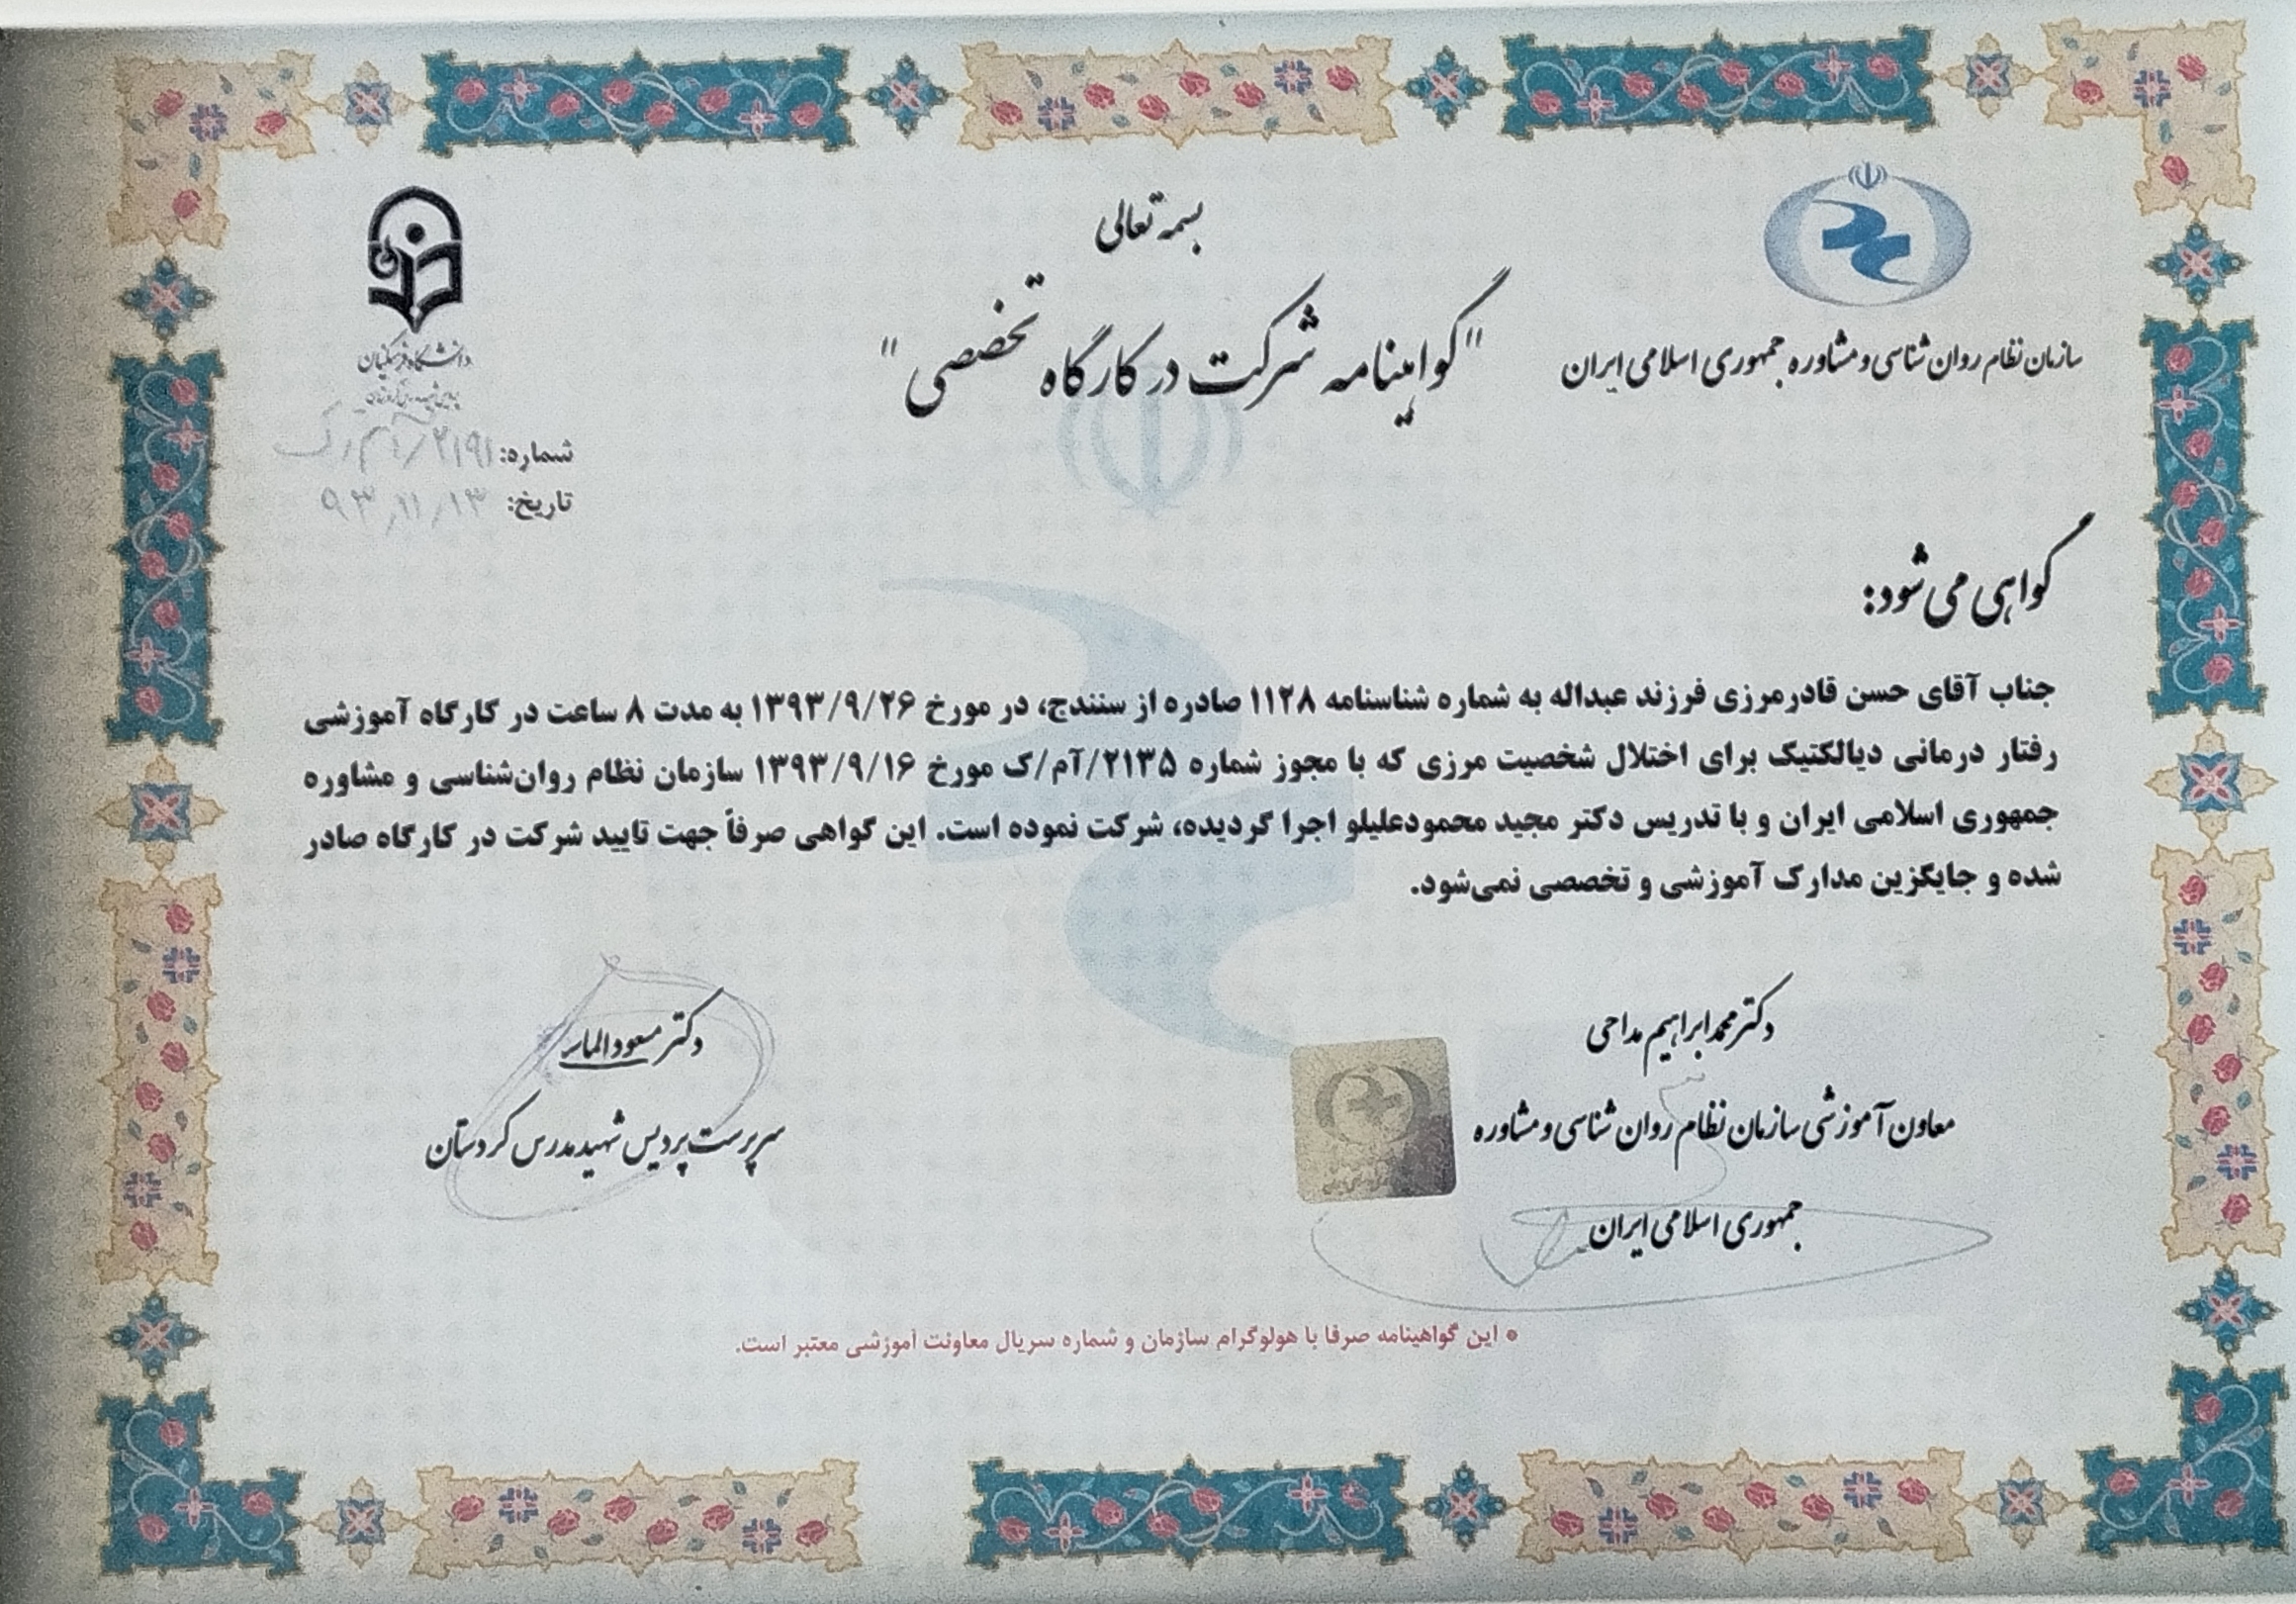 بسمه تعالی
"گواهینامه شرکت در کارگاه تخصصی"
سازمان نظام روان شناسی و مشاوره جمهوری اسلامی ایران
دانشگاه فرهنگیان
شماره: ۲۱۹۱/آم/ک
تاریخ: ۹۳/۱۱/۱۳
گواهی می شود:
جناب آقای حسن قادرمرزی فرزند عبداله به شماره شناسنامه ۱۱۲۸ صادره از سنندج، در مورخ ۱۳۹۳/۹/۲۶ به مدت ۸ ساعت در کارگاه آموزشی
رفتار درمانی دیالکتیک برای اختلال شخصیت مرزی که با مجوز شماره ۲۱۳۵/آم/ک مورخ ۱۳۹۳/۹/۱۶ سازمان نظام روان‌شناسی و مشاوره
جمهوری اسلامی ایران و با تدریس دکتر مجید محمودعلیلو اجرا گردیده، شرکت نموده است. این گواهی صرفاً جهت تایید شرکت در کارگاه صادر
شده و جایگزین مدارک آموزشی و تخصصی نمی‌شود.
دکتر محمد ابراهیم مداحی
معاون آموزشی سازمان نظام روان شناسی و مشاوره
جمهوری اسلامی ایران
دکتر مسعود الماسی
سرپرست پردیس شهید مدرس کردستان
* این گواهینامه صرفا با هولوگرام سازمان و شماره سریال معاونت آموزشی معتبر است.